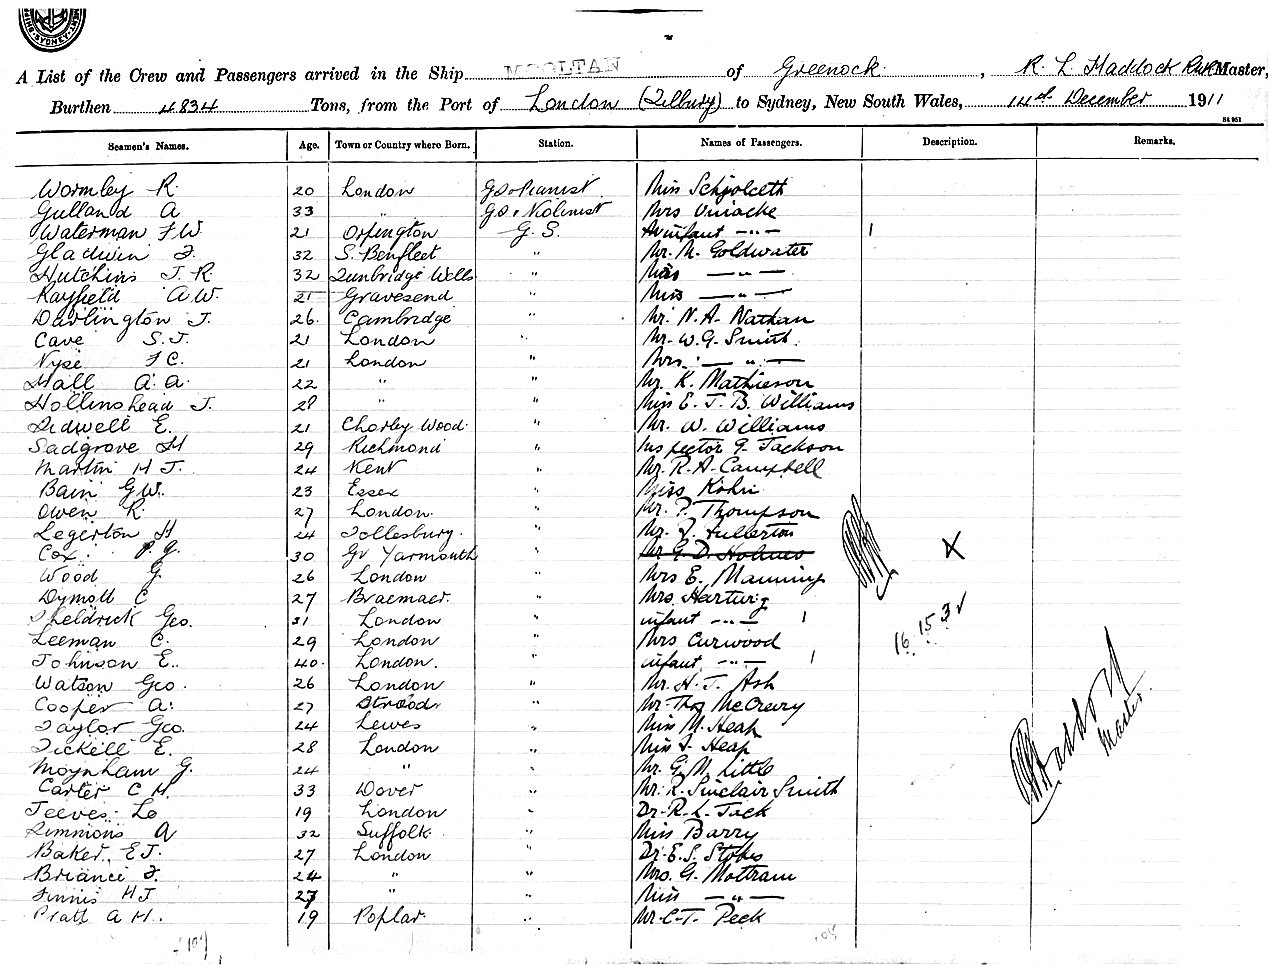 SHIPPING. SYDNEY.
A List of the Crew and Passengers arrived in the Ship MOOLTAN of Greenock, R. L. Haddock RNR Master,
Burthen 4834 Tons, from the Port of London (Tilbury) to Sydney, New South Wales, 14th December 1911
Seamen's Names. Age. Town or Country where Born. Station. Names of Passengers. Description. Remarks.
Wormley R. 20 London G S & Pianist Miss
Gulland A 33 " G S & Violinist Mrs Uniacke
Waterman F W 21 Orpington G. S. infant — " — 1
Gladwin F. 32 S. Benfleet " Mr. M. Goldwater
Hutchins J. R 32 Tunbridge Wells " Miss — " —
Rayfield A. W. 21 Gravesend " Miss — " —
Darlington J. 26 Cambridge " Mr. N. A. Nathan
Cave S. J. 21 London " Mr. W. G. Smith
Nyse F C. 21 London " Mrs. — " —
Hall A. A. 22 " " Mr. K. Mathieson
Hollinshead J. 28 " " Miss E. J. B. Williams
Sidwell E. 21 Chorley Wood " Mr. W. Williams
Sadgrove H 29 Richmond " Inspector G. Jackson
Martin H J. 24 Kent " Mr. R. A. Campbell
Bain G W. 23 Essex " Miss Kohn
Owen R. 27 London " Mr. P. Thompson
Legerton H 24 Tollesbury " Mr. J. Fullerton
Cox P. G. 30 Gt Yarmouth " Mr G. D. Holmes X
Wood G. 26 London " Mrs E. Manning
Dymott C 27 Braemaer " Mrs. Hartwig
Sheldrick Geo. 31 London " infant — " — 1 16. 15. 3 ✓
Leeman C. 29 London " Mrs Curwood
Johnson E. 40 London. " infant — " — 1
Watson Geo. 26 London " Mr. H. J. Ash
Cooper A. 27 Strood " Mr. Thos McCreery
Taylor Geo. 24 Lewes " Miss M. Heap
Tickell E. 28 London " Miss J. Heap
Moynham G. 24 " " Mr. G. M. Little Master.
Carter C H. 33 Dover " Mr. R. Sinclair Smith
Jeeves Leo 19 London " Dr. R. L. Jack
Simmons A 32 Suffolk " Miss Barry
Baker. E J. 27 London " Dr. E. S. Stokes
Briance F. 24 " " Mrs. G. Mottram
Finnis H J 27 " " Miss — " —
Pratt A H. 19 Poplar " Mr. C. T. Peck